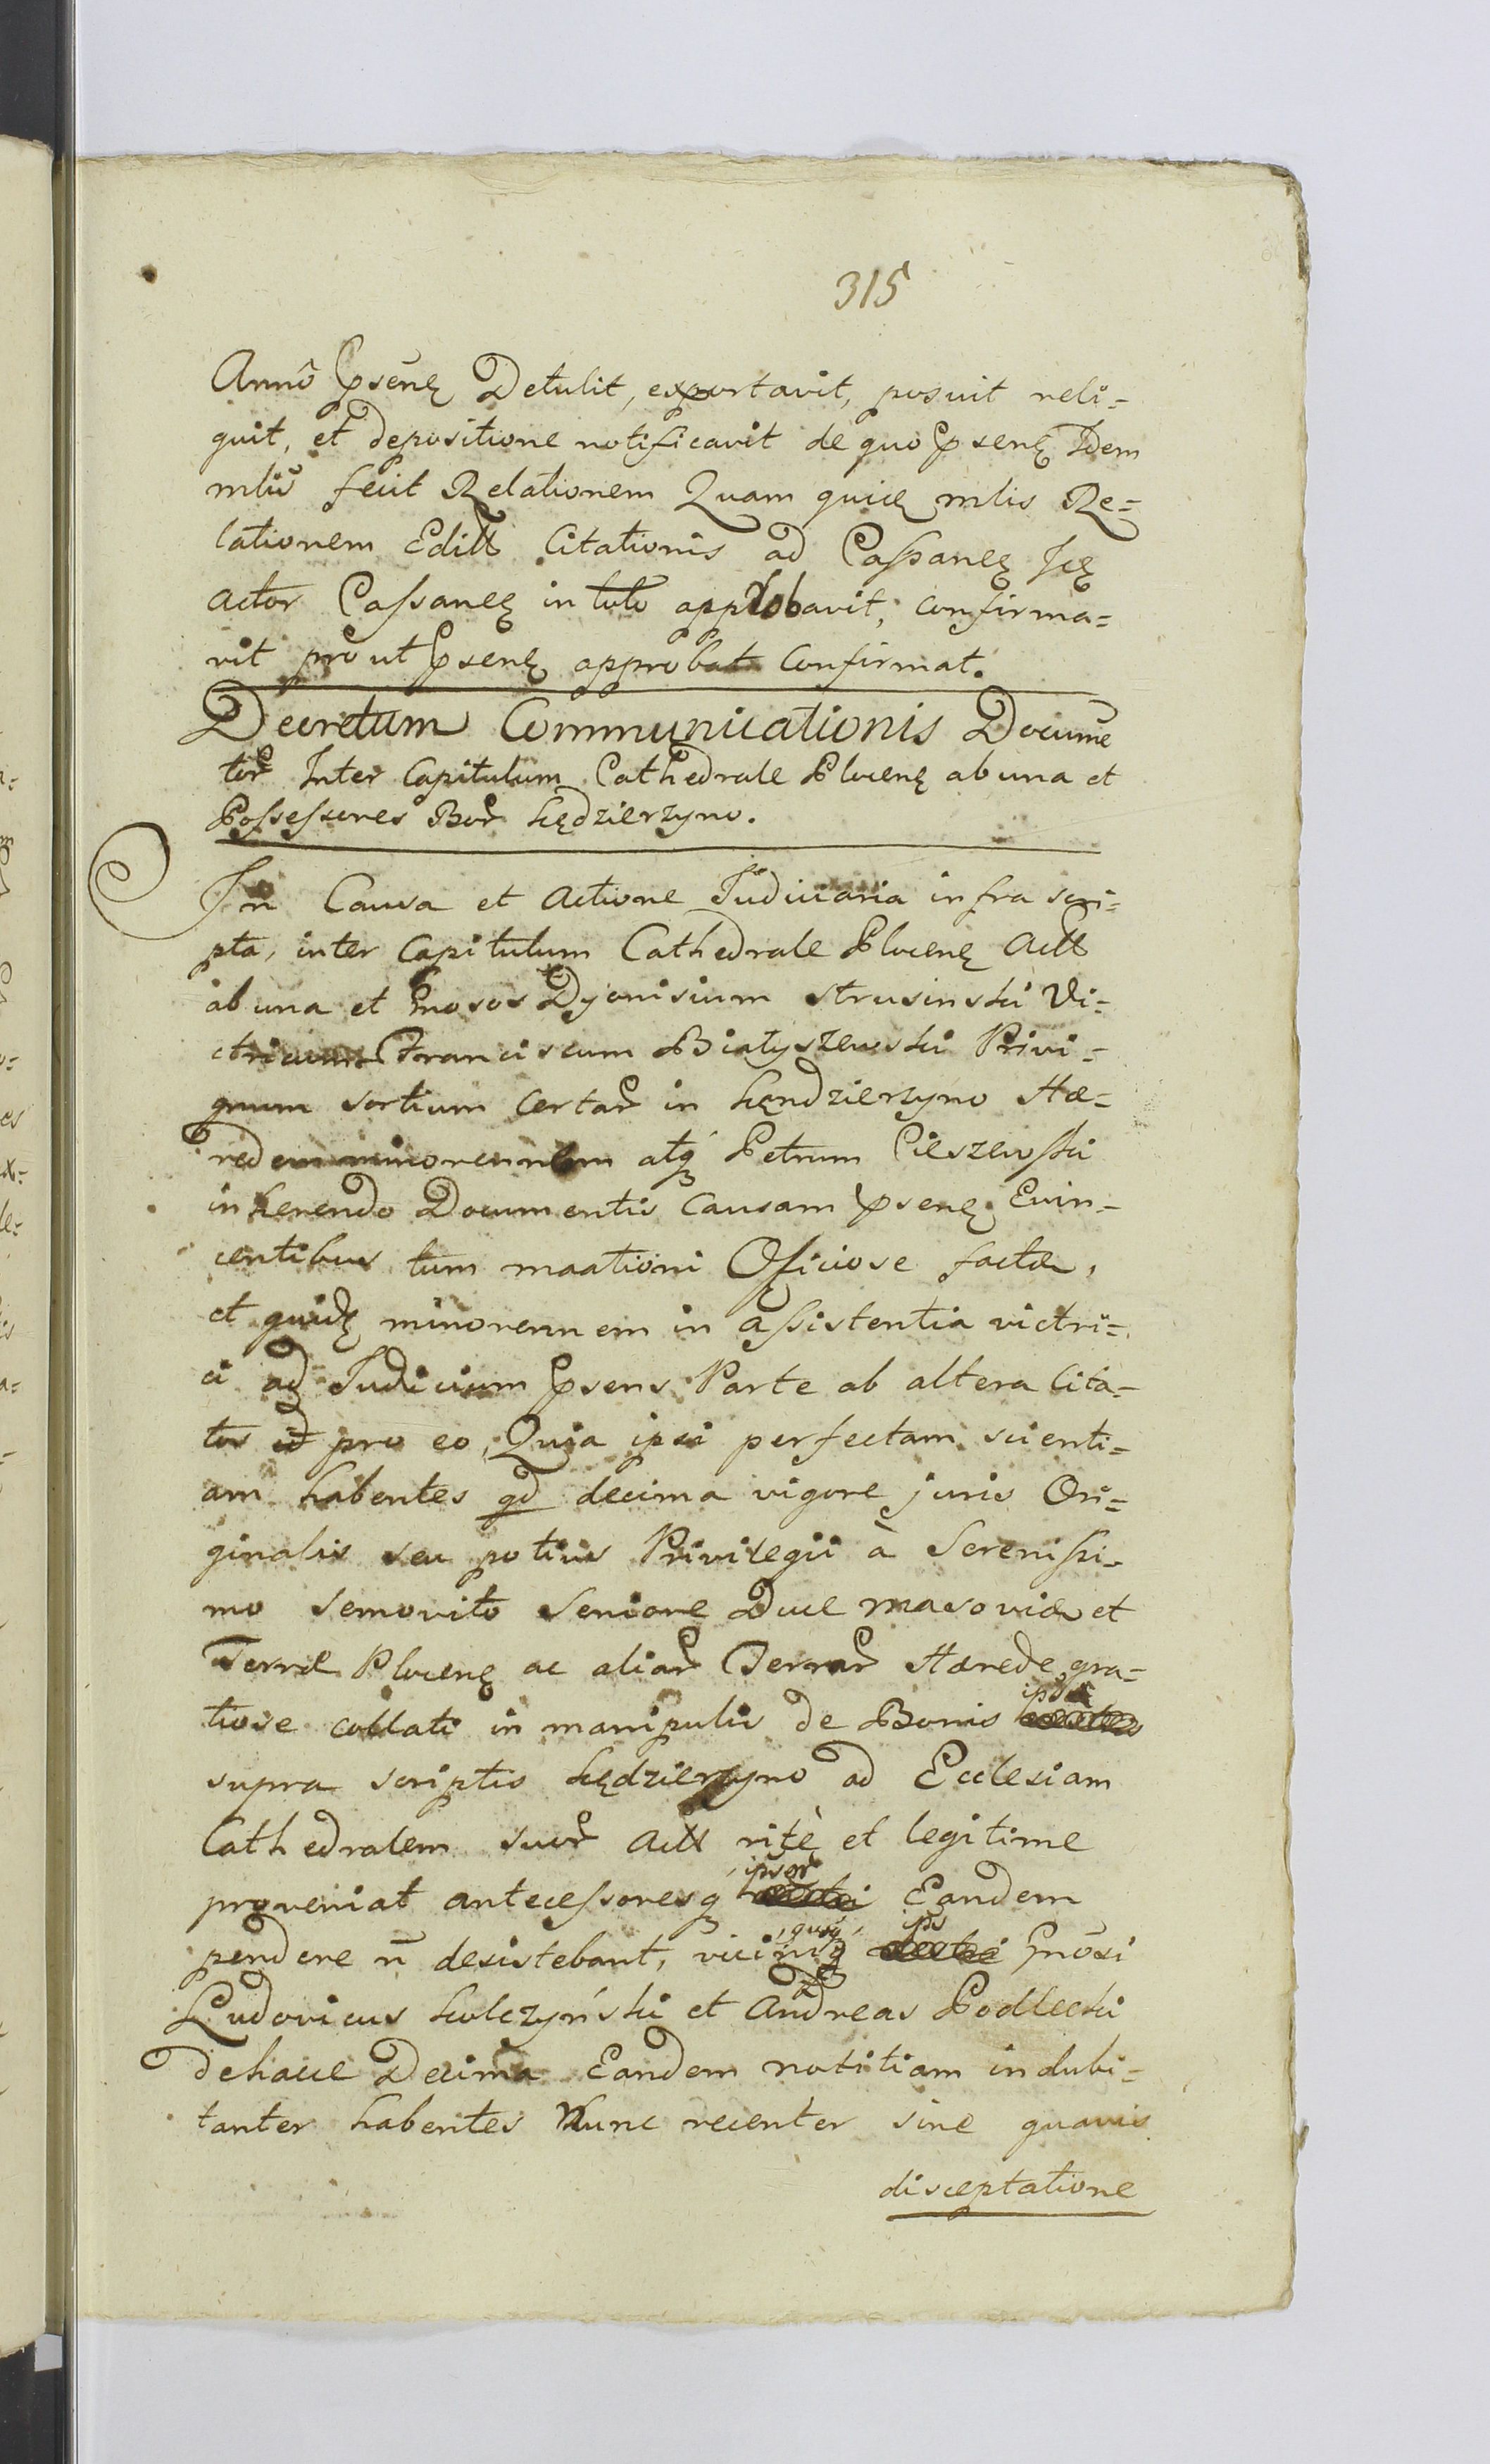 315
Anno psenę Detulit, exportavit, posuit reli=
quit, et depositione notificavit de quo psenę Idem
mlis fecit Relationem Quam quicę mlis Re=
lationem Editt Citationis ad Cassanę Jcę
actor Cassanę in toto approbavit, confirma=
vit prout psenę approbat confirmat.
Decretum Communicationis Docume
tor Inter Capitulum Cathedrale Plocenę ab una et
Possessores Bor Kędzierzyno.
In Causa et Actione Judiciaria infra scri=
pta, inter Capitulum Cathedrale Plocenę Actt
ab una et Gnosos Dyonisium Strusinski Vi=
ctricum Franciscum Białyszewski Privi=
gnum sortium certar in Kęndzierzyno Hæ=
redem minorennem atq Petrum Cieszewski
inherendo Documentis causam psenę Evin=
centibus tum maationi Officiose factæ,
et quidę minorennem in assistentia victri=
ci ad Judicium psens Parte ab altera Cita=
tos id pro eo, Quia ipsi perfectam scienti=
am habentes qd decima vigore juris Ori=
ginalis seu potius Privilegii à Serenissi=
mo Semovito Seniore Duce Masoviæ et
Terræ Plocenę ac aliar Terrar Hærede gra=
tiose collati in manipulis de Bonis ipsis
supra scriptis Kędzierzyno ad Ecclesiam
Cathedralem suor Actt ritè et legitime
proveniat antecessoresq ipsor Eandem
pendere n desistebant, viciniq ips Gnosi
Ludovicus Kolczyński et Andreas Podlecki
dehacce Decima Eandem notitiam indubi=
tanter habentes Nunc recenter sine quavis
disceptatione